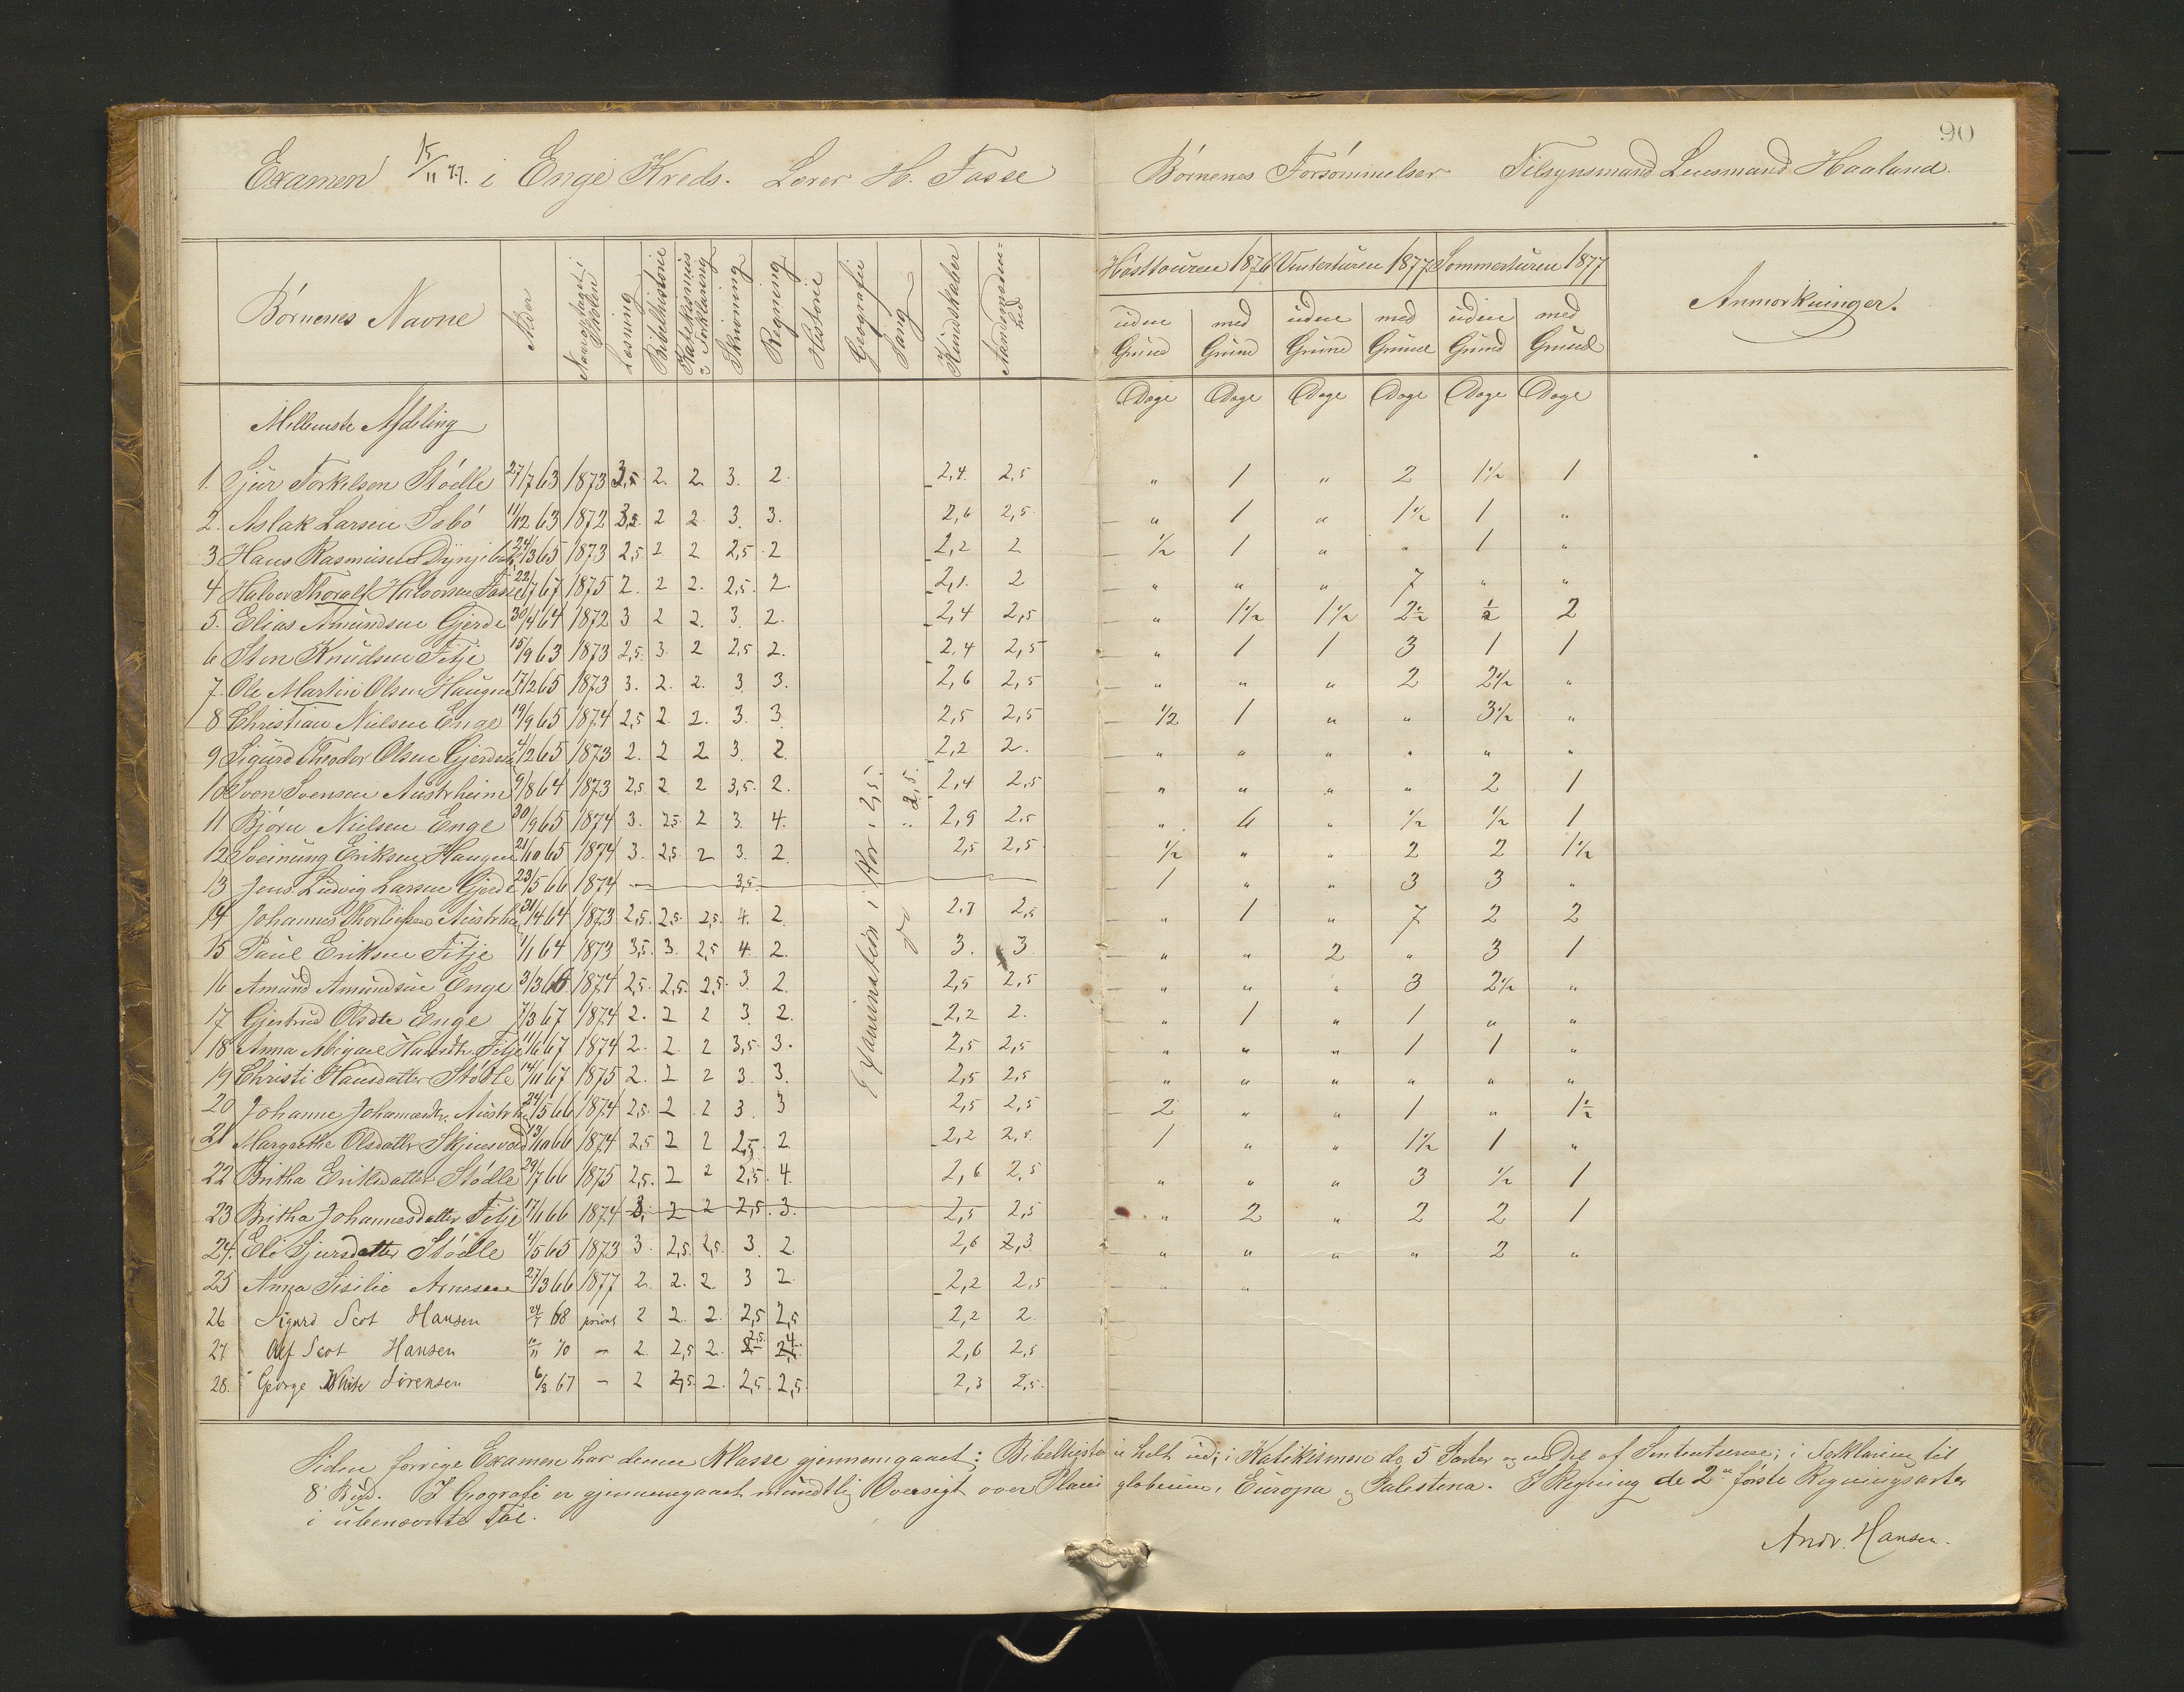 90
Examen 15/11 77. i Enge Kreds. Lærer H. Tasse
Børnenes Forsømmelser Tilsynsmand Lensmand Haaland.
Børnenes Navne | Alder | Naar optaget i Skolen | Læsning | Bibelhistorie | Katekismus & Forklaring | Skrivning | Regning | Historie | Geografi | Sang | Kundskaber | Aandsmodenhed
Høsttouren 1876 | Vinterturen 1877 | Sommerturen 1877 | Anmærkninger.
uden Grund | med Grund | uden Grund | med Grund | uden Grund | med Grund
Dage | Dage | Dage | Dage | Dage | Dage
Mellemste Afdeling
1. Sjur Torkelsen Stødle 27/7 63 1873 3,5 2. 2 3. 2. 2,4. 2,5 " 1 " 2 1 1/2 1
2. Aslak Larsen Isbø 11/12 63 1872 3,5 2 2 3. 3. 2,6 2,5 " 1 " 1 1/2 1 "
3 Hans Rasmusen 24/3 65 1873 2,5 2 2 2,5 2 2,2 2 1/2 1 " " 1 "
4 Halvor Thoralf Halvorsen Tasse 22/7 67 1875 2. 2 2. 2,5. 2 2,1. 2 " " " 7 " "
5. Elias Amundsen Gjerde 30/4 64 1872 3 2 2. 3. 2. 2,4 2,5 " 1 1/2 1 1/2 2 1/2 1/2 2
6 Sten Knudsen Fitje 15/9 63 1873 2,5. 3. 2 2,5 2. 2,4 2,5 " 1 1 3 1 1
7. Ole Martin Olsen Haugen 17/2 65 1873 3. 2. 2. 3. 3. 2,6 2,5 " " " 2 2 1/2 "
8 Christian Nielsen Enge 19/9 65 1874 2,5 2 2. 3. 3. 2,5 2,5 1/2 1 " " 3 1/2 "
9 Sigurd Theodor Olsen 4/12 65 1873 2. 2 2 3. 2. 2,2 2. " " " " " "
10 Sven Svensen Austrheim 9/8 64 1873 2,5. 2 2 3,5. 2. 2,4 2,5 " " " " 2 1
11 Bjørn Nielsen Enge 30/9 65 1874 3. 2,5 2 3. 4. 2,9 2,5 " 4 " 1/2 1/2 1
12 Sveinung Eriksen Haugen 21/10 65 1874 3. 2,5 2 3. 2. 2,5 2,5 1/2 " " 2 2 1 1/2
13 Jens Ludvig Larsen Gjerde 23/5 66 1874 — 3,5. 1 " " 3 3 "
14 Johannes 31/4 64 1873 2,5. 2,5. 2,5. 4. 2 2,7 2,5 " 1 " 7 2 2
15 Paul Eriksen Fitje 1/1 64 1873 3,5. 3. 2,5 4. 2. 3. 3 " " 2 " 3 1
16 Amund Amundsen Enge 3/3 66 1874 2,5. 2,5. 2,5. 3. 2. 2,5 2,5 " " " 3 2 1/2 "
17 Gjertrud Olsdtr Enge 7/3 67 1874 2. 2 2 3. 2. 2,2 2. " 1 " 1 " "
18 Anna Abigael Hansdtr Fitje 11/6 67 1874 2. 2. 2 3,5. 3. 2,5 2,5 " " " 1 1 "
19 Christi Hansdatter Stødle 14/11 67 1875 2. 2 2 3. 3. 2,5 2,5 " " " " " "
20 Johanne Johannesdtr. 24/5 66 1874 2,5. 2 2 3. 3 2,5 2,5 2 " " 1 " 1 1/2
21 Margrethe Olsdatter Skjensvold 13/10 66 1874 2,5 2 2 2,5 2 2,2 2,5 1 " " 1 1/2 1 "
22 Britha Eriksdatter Stødle 29/7 66 1875 2,5. 2 2 2,5. 4. 2,6 2,5 " " " 3 1/2 1
23 Britha Johannesdatter Fitje 17/1 66 1874 3. 2 2 2,5. 3. 2,5 2,5 " 2 " 2 2 1
24. Eli Sjursdatter Stødle 4/5 65 1873 3. 2,5. 2,5. 3. 2 2,6 2,3 " " " " 2 "
25 Anna Sisilie Arnesen 27/3 66 1877 2. 2. 2 3 2 2,2 2,5 " "
26 Sigurd Scot Hansen 24/7 68 privat 2 2. 2. 2,5 2,5 2,2 2.
27 Alf Scot Hansen 10/11 70 — 2. 2,5 2. 2,5 4 2,6 2,5
28. George White Sørensen 6/3 67 — 2 2,5. 2. 2,5. 2,5. 2,3 2,5.
Examination i Kor: 2,5.
do : 2,5.
Siden forrige Examen har denne Klasse gjennemgaaet: Bibelhistorie helt ud; i Katikismen de 5 Parter og en Del af Sententserne; i Forklaring til
8 Bud. I Geografi er gjennemgaaet mundtlig Oversigt over Planiglobierne, Europa og Palestina. I Regning de 2 første Regningsarter
i ubenævnte Tal.
Andr. Hansen.